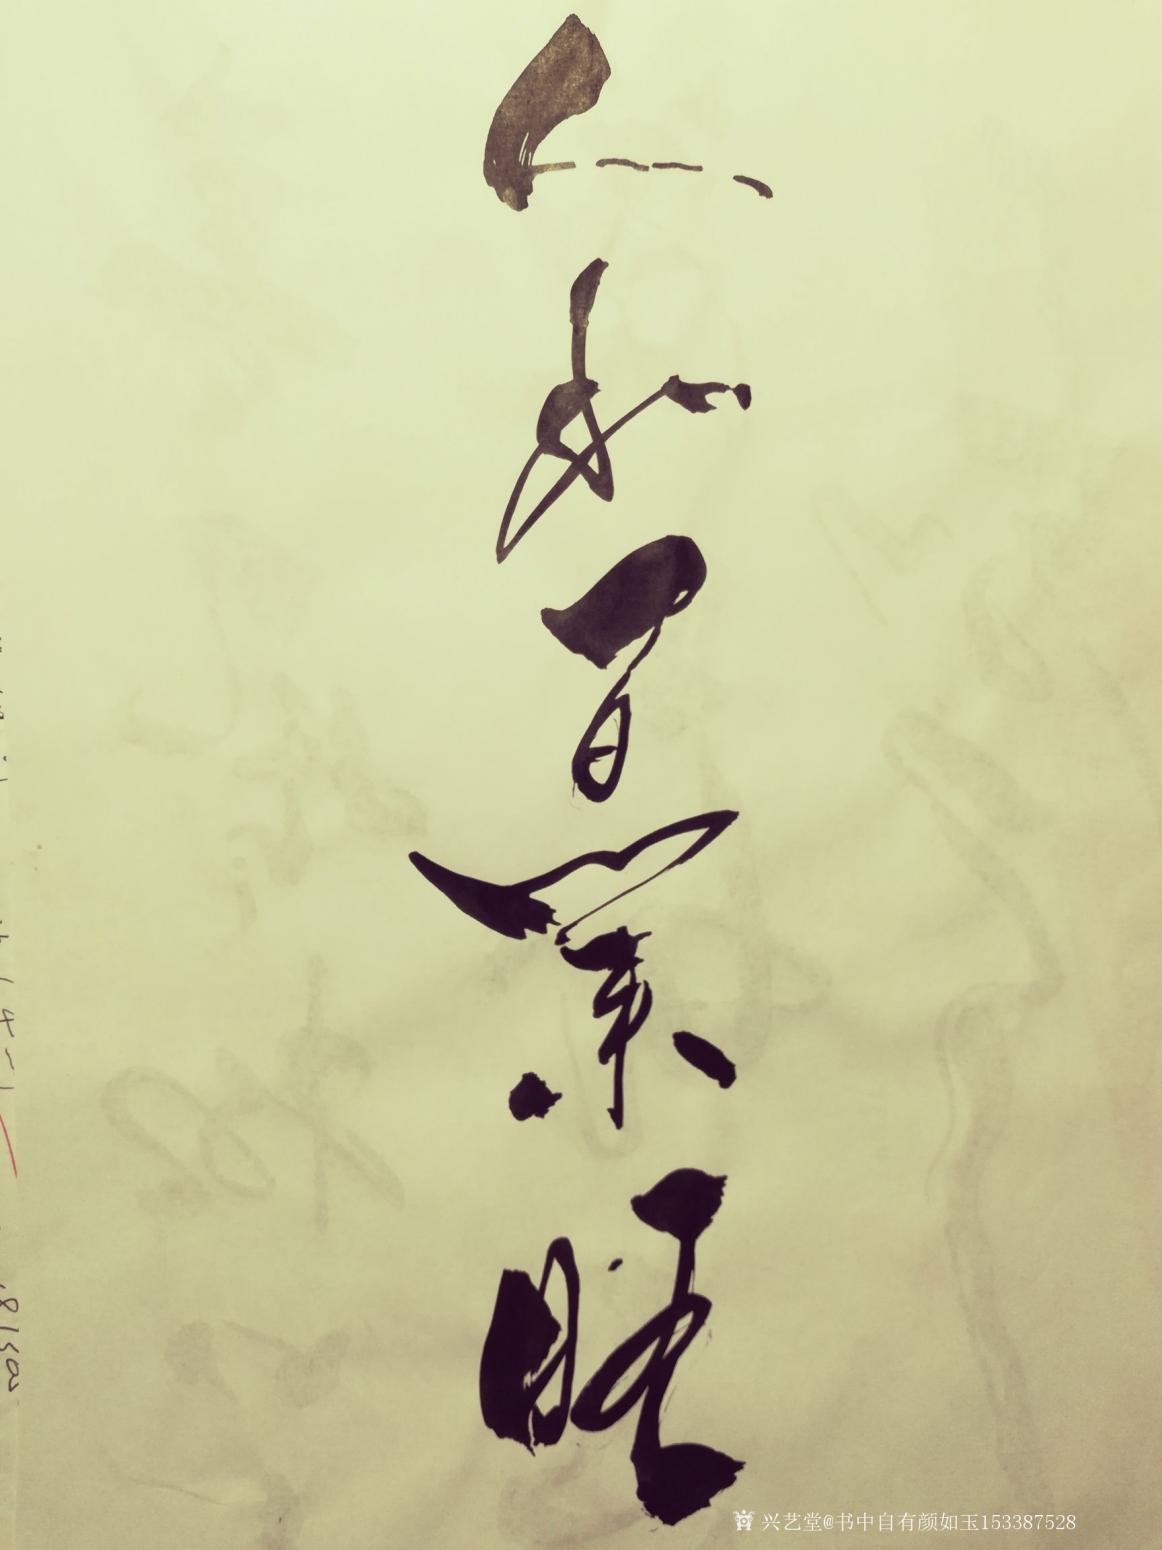 人和百業旺
兴艺堂@书中自有颜如玉153387528